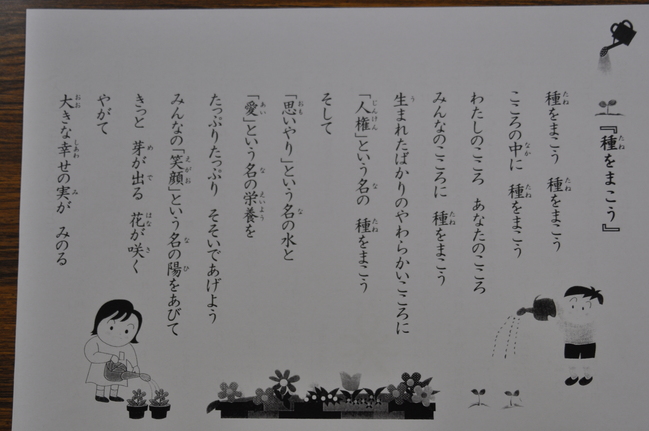 『種をまこう』
種をまこう　種をまこう
こころの中に　種をまこう
わたしのこころ　あなたのこころ
みんなのこころに　種をまこう
生まれたばかりのやわらかいこころに
「人権」という名の　種をまこう
そして
「思いやり」という名の水と
「愛」という名の栄養を
たっぷりたっぷり　そそいであげよう
みんなの「笑顔」という名の陽をあびて
きっと　芽が出る　花が咲く
やがて
大きな幸せの実が　みのる